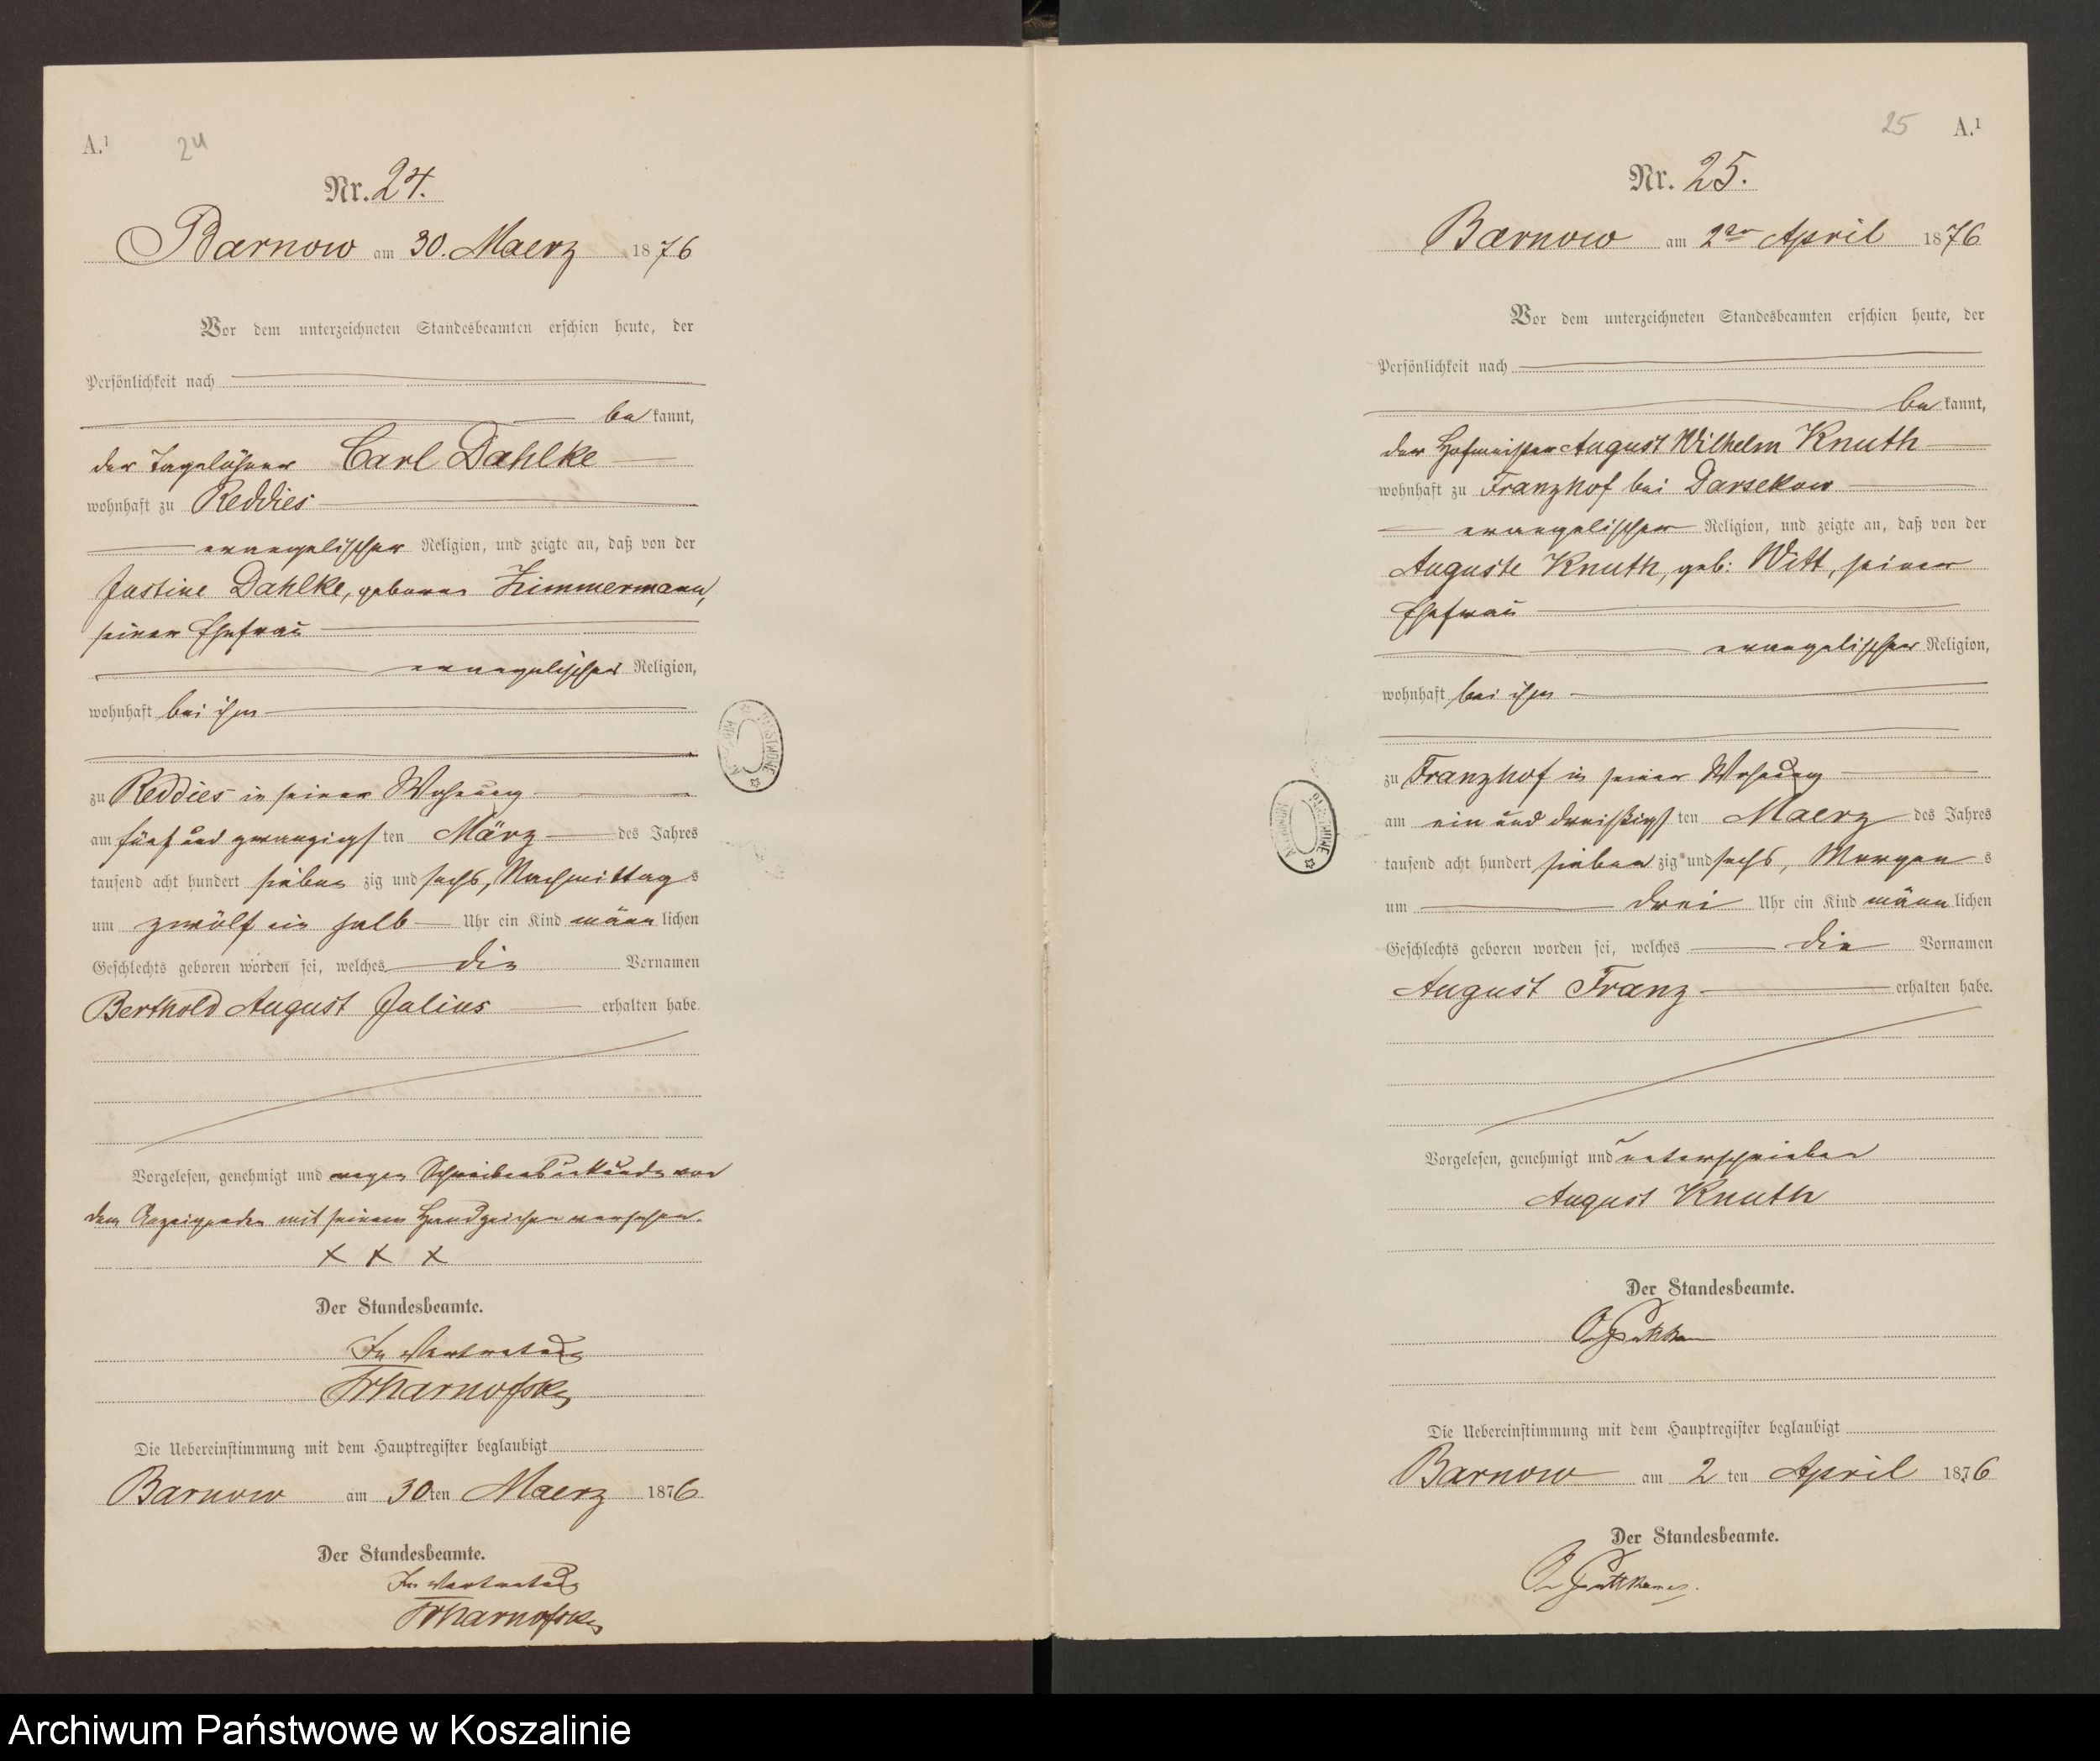 A.¹ 24
Nr. 24.
Barnow am 30. Maerz 1876
Vor dem unterzeichneten Standesbeamten erschien heute, der
Persönlichkeit nach
be kannt,
der Tagelöhner Carl Dahlke
wohnhaft zu Reddies
evangelischer Religion, und zeigte an, daß von der
Justine Dahlke, geborne Zimmermann,
seiner Ehefrau
evangelischer Religion,
wohnhaft bei ihm
zu Reddies in seiner Wohnung
am fünf und zwanzigsten März des Jahres
tausend acht hundert sieben zig und sechs, Nachmittags
um zwölf ein halb Uhr ein Kind männlichen
Geschlechts geboren worden sei, welches die Vornamen
Berthold August Julius erhalten habe.
Vorgelesen, genehmigt und wegen Schreibensunkunde von
dem Anzeigenden mit seinem Handzeichen versehen.
x x x
Der Standesbeamte.
In Vertretung
Die Uebereinstimmung mit dem Hauptregister beglaubigt
Barnow am 30ten Maerz 1876
Der Standesbeamte.
In Vertretung
25 A.¹
Nr. 25.
Barnow am 2ten April 1876
Vor dem unterzeichneten Standesbeamten erschien heute, der
Persönlichkeit nach
be kannt,
der Hofmeister August Wilhelm Knuth
wohnhaft zu Franzhof bei Darsekow
evangelischer Religion, und zeigte an, daß von der
Auguste Knuth, geb: Witt, seiner
Ehefrau
evangelischer Religion,
wohnhaft bei ihm
zu Franzhof in seiner Wohnung
am ein und dreißigsten Maerz des Jahres
tausend acht hundert sieben zig und sechs, Morgens
um drei Uhr ein Kind männlichen
Geschlechts geboren worden sei, welches die Vornamen
August Franz erhalten habe.
Vorgelesen, genehmigt und unterschrieben
August Knuth
Der Standesbeamte.
Die Uebereinstimmung mit dem Hauptregister beglaubigt
Barnow am 2 ten April 1876
Der Standesbeamte.
Archiwum Państwowe w Koszalinie